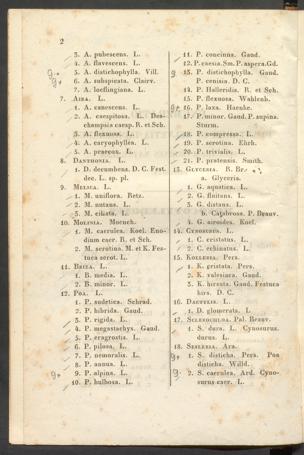 2
3. A. pubescens. L.
4. A. flavescens. L.
5. A. distichophylla. Vill.
6. A. subspicata. Clairv.
7. A. loeflingiana. L.
7. AIRA. L.
1. A. canescens. L.
2. A. caespitosa. L. Des-
champsia caesp. R. et Sch.
3. A. flexuosa. L.
4. A. caryophyllea. L.
5. A. praecox. L.
8. DANTHONIA. L.
1. D. decumbens. D. C. Fest.
dec. L. sp. pl.
9. MELICA. L.
1. M. uniflora. Retz.
2. M. nutans. L.
3. M. ciliata. L.
10. MOLINIA. Moench.
1. M. caerulea. Koel. Eno-
dium caer. R. et Sch.
2. M. serotina. M. et K. Fes-
tuca serot. L.
11. BRIZA. L.
1. B. media. L.
2. B. minor. L.
12. POA. L.
1. P. sudetica. Schrad.
2. P. hibrida. Gaud.
3. P. rigida. L.
4. P. megastachys. Gaud.
5. P. eragrostis. L.
6. P. pilosa. L.
7. P. nemoralis. L.
8. P. annua. L.
9. P. alpina. L.
10. P. bulbosa. L.
11. P. concinna. Gaud.
12. P. caesia. Sm. P. aspera. Gd.
13. P. distichophylla. Gaud.
P. cenisia. D. C.
14. P. Halleridis. R. et Sch.
15. P. flexuosa. Wahlenb.
16. P. laxa. Haenke.
17. P. minor. Gaud. P. supina.
Sturm.
18. P. compressa. L.
19. P. serotina. Ehrh.
20. P. trivialis. L.
21. P. pratensis. Smith.
13. GLYCERIA. R. Br.
a. Glyceria.
1. G. aquatica. L.
2. G. fluitans. L.
3. G. distans. L.
b. Catabrosa. P. Beauv.
4. G. airoides. Koel.
14. CYNOSURUS. L.
1. C. cristatus. L.
2. C. echinatus. L.
15. KOELERIA. Pers.
1. K. cristata. Pers.
2. K. valesiaca. Gaud.
3. K. hirsuta. Gaud. Festuca
hirs. D. C.
16. DACTYLIS. L.
1. D. glomerata. L.
17. SCLEROCHLOA. Pal. Beauv.
1. S. dura. L. Cynosurus.
durus. L.
18. SESLERIA. Ard.
1. S. disticha. Pers. Poa
disticha. Willd.
2. S. caerulea. Ard. Cyno-
surus caer. L.